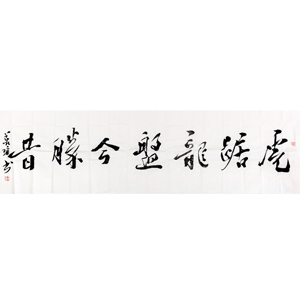 虎踞龍盤今勝昔